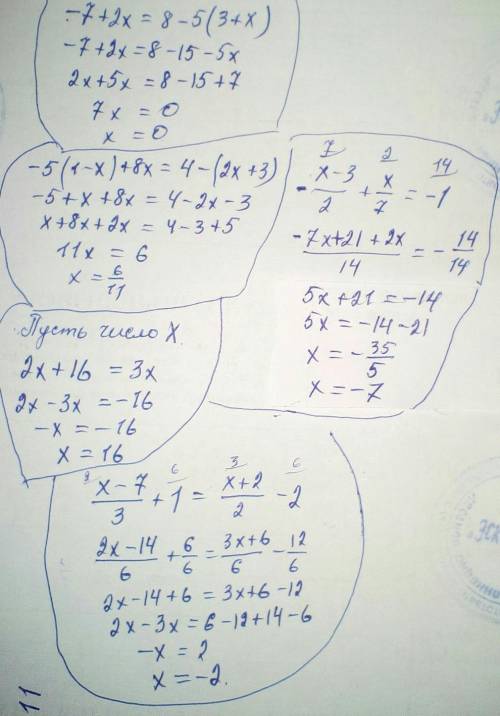 -7+2x = 8-5(3+x)
-7+2x=8-15-5x
2x+5x=8-15+7
7x = 0
x = 0
-5(1-x)+8x = 4-(2x+3)
-5+x+8x = 4-2x-3
x+8x+2x = 4-3+5
11x = 6
x = 6/11
Пусть число X
2x+16 = 3x
2x-3x = -16
-x = -16
x = 16
7 2 14
-x-3/2 + x/7 = -1
-7x+21+2x/14 = -14/14
5x+21 = -14
5x = -14-21
x = -35/5
x = -7
6 3 6
x-7/3 + 1 = x+2/2 - 2
2x-14/6 + 6/6 = 3x+6/6 - 12/6
2x-14+6 = 3x+6-12
2x-3x = 6-12+14-6
-x = 2
x = -2.
11